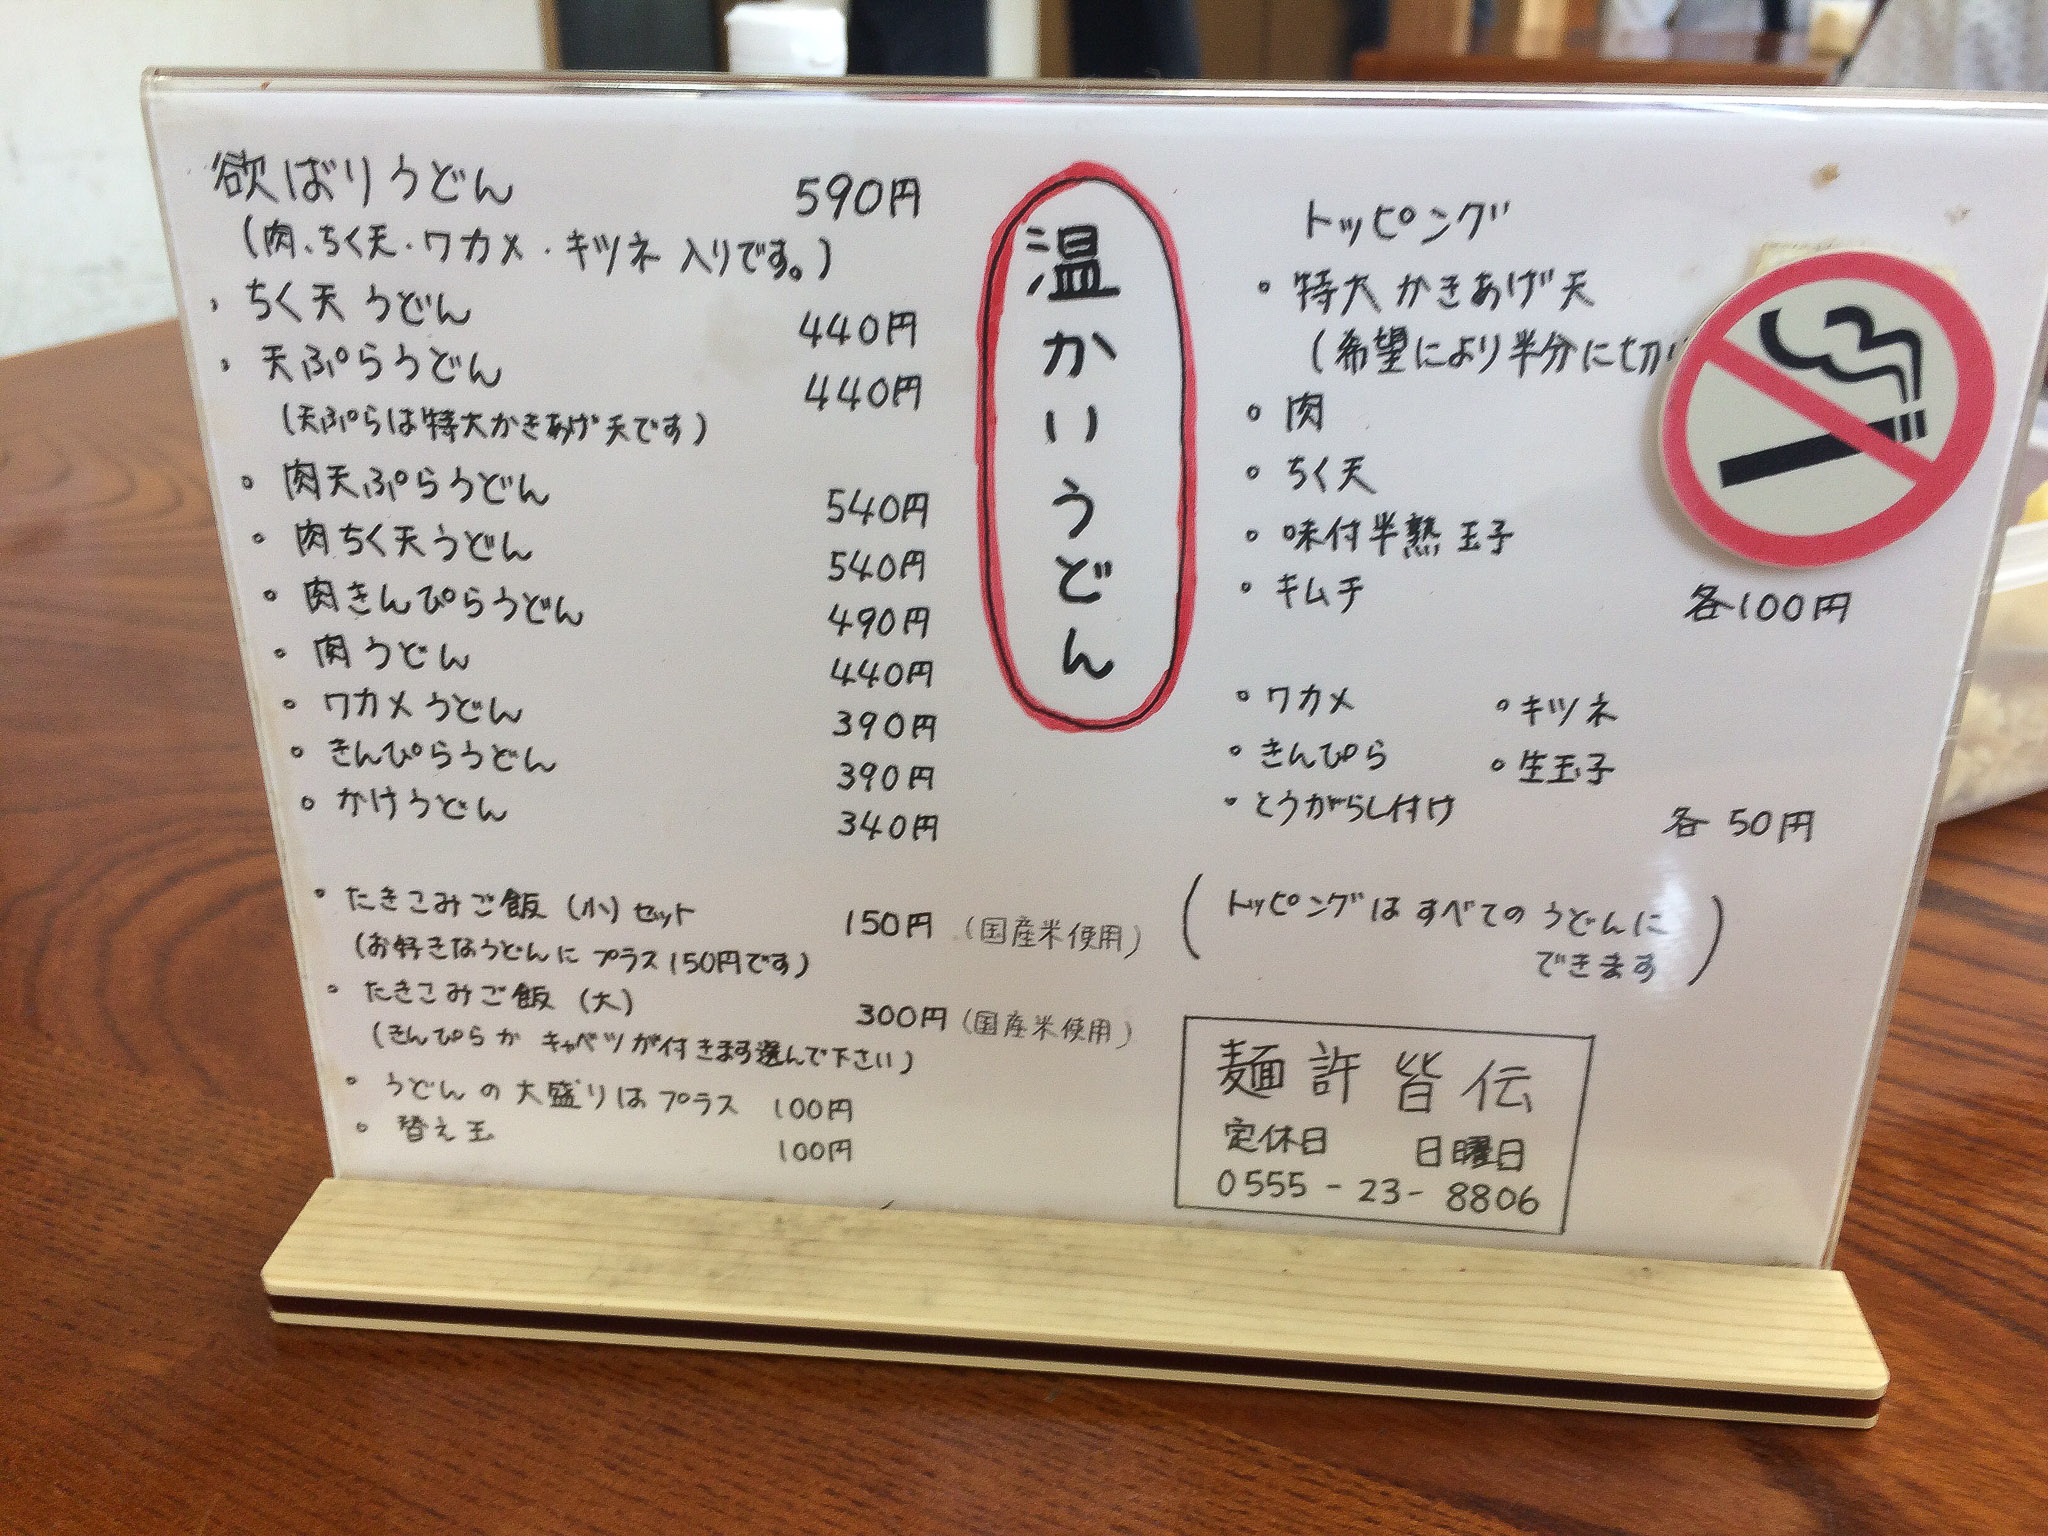 欲ばりうどん 590円
(肉、ちく天・ワカメ・キツネ入りです。)
・ちく天うどん 440円
・天ぷらうどん 440円
(天ぷらは特大かきあげ天です)
・肉天ぷらうどん 540円
・肉ちく天うどん 540円
・肉きんぴらうどん 490円
・肉うどん 440円
・ワカメうどん 390円
・きんぴらうどん 390円
・かけうどん 340円
・たきこみご飯(小)セット 150円(国産米使用)
(お好きなうどんにプラス150円です)
・たきこみご飯(大) 300円(国産米使用)
(きんぴらか キャベツが付きます選んで下さい)
・うどんの大盛りはプラス 100円
・替え玉 100円
温かいうどん
トッピング
・特大かきあげ天
(希望により半分に切り
・肉
・ちく天
・味付半熟玉子
・キムチ 各100円
・ワカメ ・キツネ
・きんぴら ・生玉子
・とうがらし付け 各50円
(トッピングはすべてのうどんに
できます)
麺許皆伝
定休日 日曜日
0555-23-8806